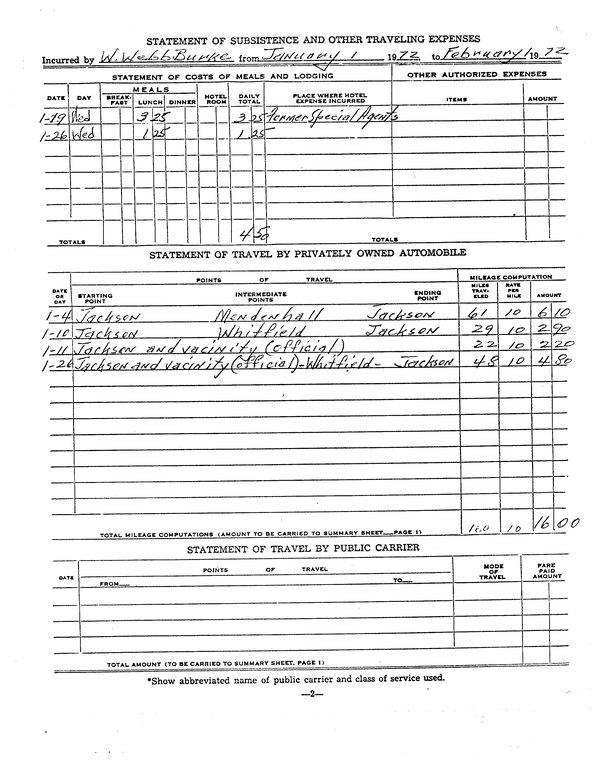 STATEMENT OF SUBSISTENCE AND OTHER TRAVELING EXPENSES
Incurred by W. Webb Burke from January 1 1972 to February 1 1972
STATEMENT OF COSTS OF MEALS AND LODGING OTHER AUTHORIZED EXPENSES
DATE DAY MEALS BREAK-FAST LUNCH DINNER HOTEL ROOM DAILY TOTAL PLACE WHERE HOTEL EXPENSE INCURRED ITEMS AMOUNT
1-19 Wed 3 25 3 25 Former Special Agents
1-26 Wed 1 25 1 25
TOTALS 4 50 TOTALS
STATEMENT OF TRAVEL BY PRIVATELY OWNED AUTOMOBILE
DATE OR DAY POINTS OF TRAVEL MILEAGE COMPUTATION
STARTING POINT INTERMEDIATE POINTS ENDING POINT MILES TRAV-ELED RATE PER MILE AMOUNT
1-4 Jackson Mendenhall Jackson 61 10 6 10
1-10 Jackson Whitfield Jackson 29 10 2 90
1-11 Jackson and vacinity (official) 22 10 2 20
1-26 Jackson and vacinity (official)-Whitfield- Jackson 48 10 4 80
TOTAL MILEAGE COMPUTATIONS (AMOUNT TO BE CARRIED TO SUMMARY SHEET__PAGE 1) 160 10 16 00
STATEMENT OF TRAVEL BY PUBLIC CARRIER
DATE POINTS OF TRAVEL MODE OF TRAVEL FARE PAID AMOUNT
FROM__ TO__
TOTAL AMOUNT (TO BE CARRIED TO SUMMARY SHEET, PAGE 1)
*Show abbreviated name of public carrier and class of service used.
—2—